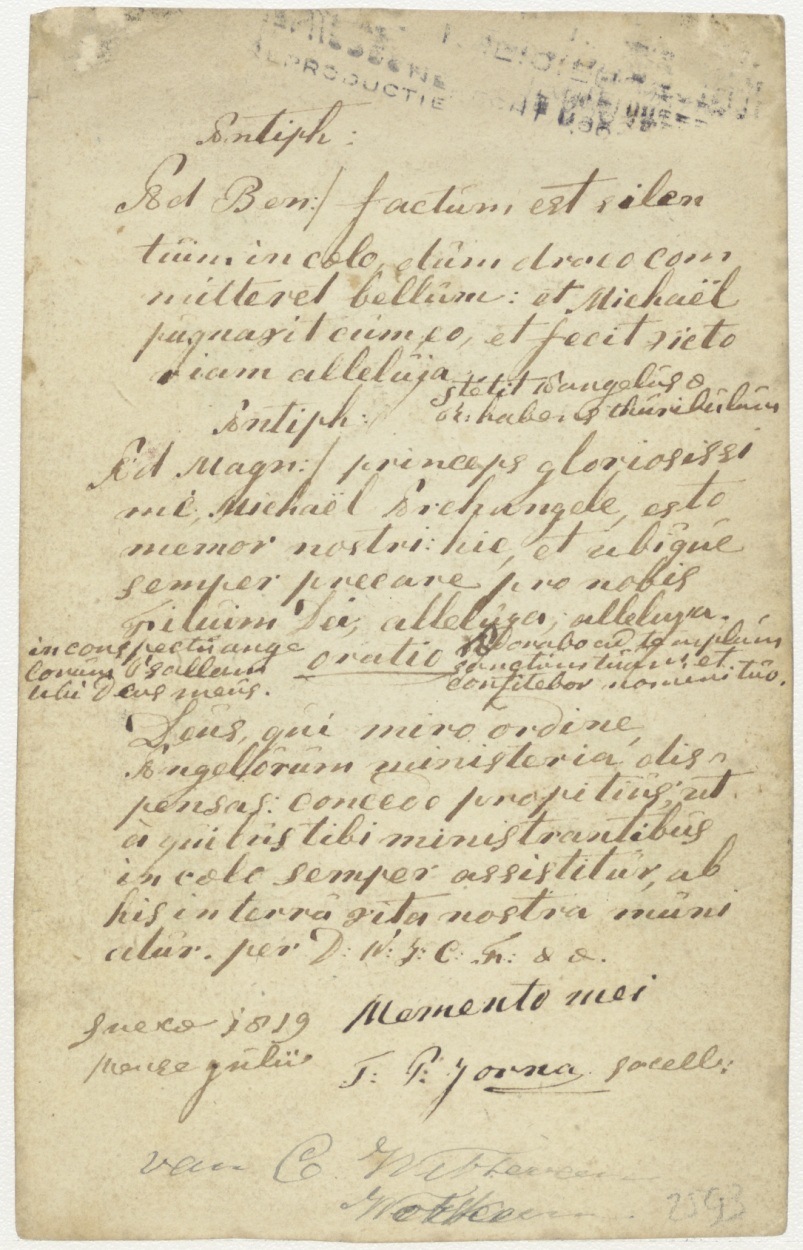 REPRODUCTIE
Antiph:
Ad Ben:/ factum est silen
tium in cœlo, dum draco com
mitteret bellum: et Michaël
pugnavit cum eo, et fecit victo
riam alleluja.
stetit Angelus &
℟: habens thuribulum
Antiph:
Ad Magn:/ princeps gloriosissi
me, Michaël Archangele, esto
memor nostri: hic, et ubique
semper precare pro nobis
Filium Dei, alleluja, alleluja.
in conspectu ange
lorum Psallam
tibi Deus meus.
oratio
Adorabo ad templum
sanctum tuum: et
confitebor nomini tuo.
Deus, qui miro ordine,
Angelorum ministeria, dis
pensas: concede propitius, ut
à quibus tibi ministrantibus
in cœlo semper assistitur, ab
his in terrâ vita nostra muni
atur. per D: N: J: C: F: & &.
Sneko 1819
mense julii
Memento mei
F: P: Jorna sacell:
van C. Witteveen
2593